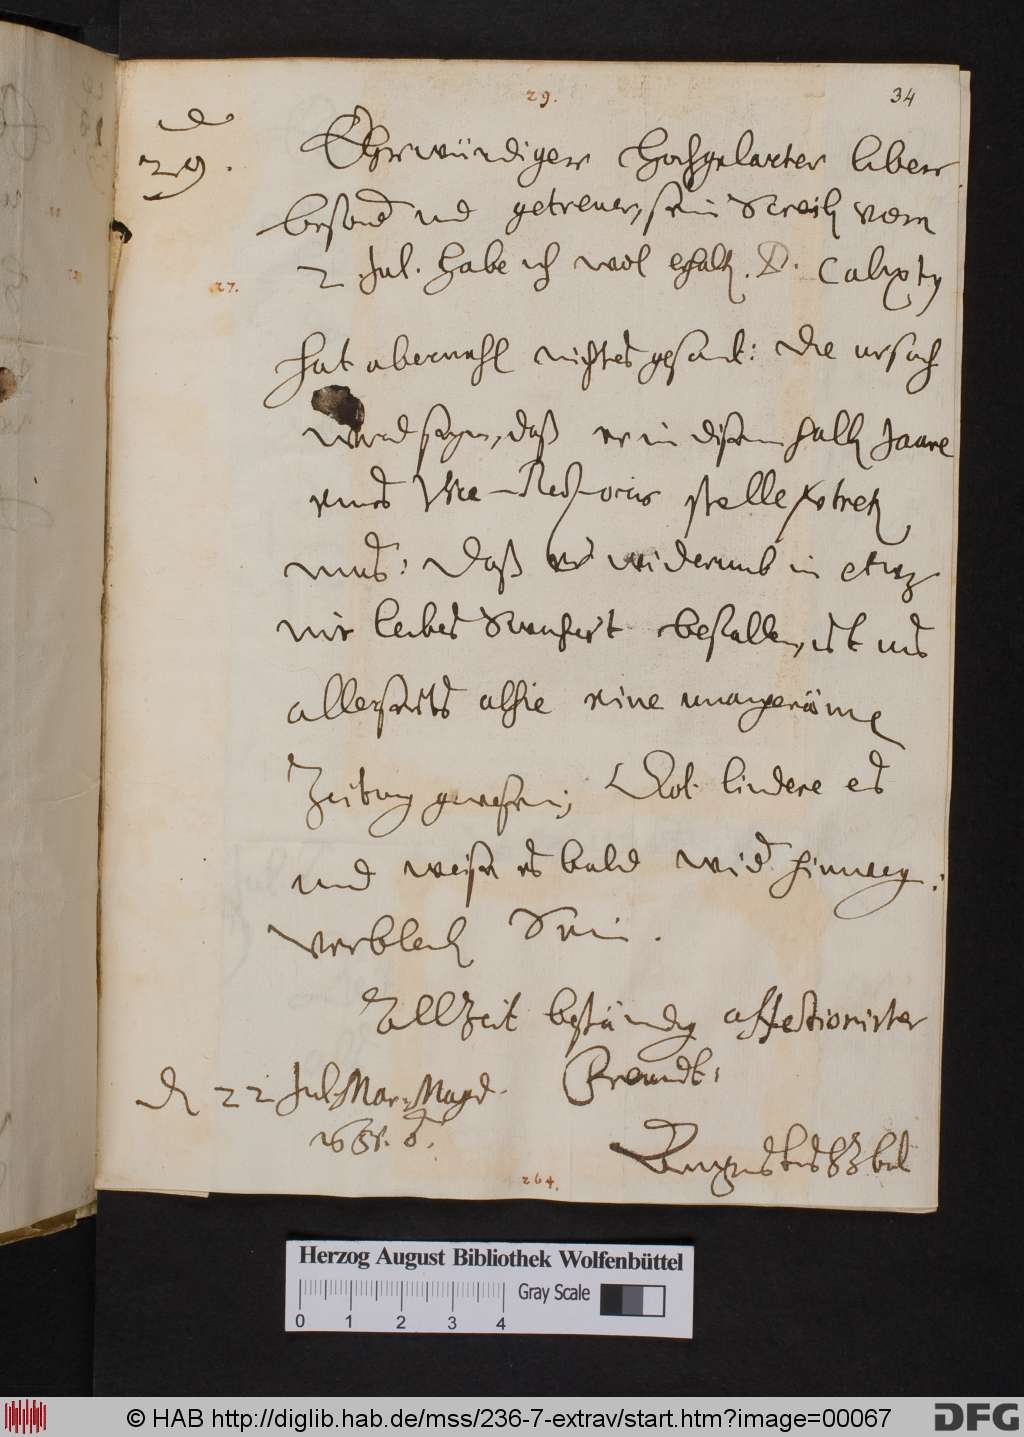 29.
34
29.
Ehrwürdiger Hochgelarter lieber
besond und getreuer, sein Schreib vom
2 Jul. habe ich wol erhalt. D. Calixty
27.
hat abermahl nichtes gesant: die ursach
wird sein, daß er in disem halb Jaare
eines Vice-Rectoris stelle vertret
mus: daß er widerumb in etwz
mit leibes Swacheit befallen, ist uns
allerseits alhie eine unangenäme
Zeitung gewesen; Got lindere es
und weise es bald wider hinweg:
verbleib Sein.
Allzeit beständig affectionirter
Freundt,
d 22 Jul. Mar. Magd.
Augustus HZbul
264.
Herzog August Bibliothek Wolfenbüttel
Gray Scale
0 1 2 3 4
© HAB http://diglib.hab.de/mss/236-7-extrav/start.htm?image=00067
DFG